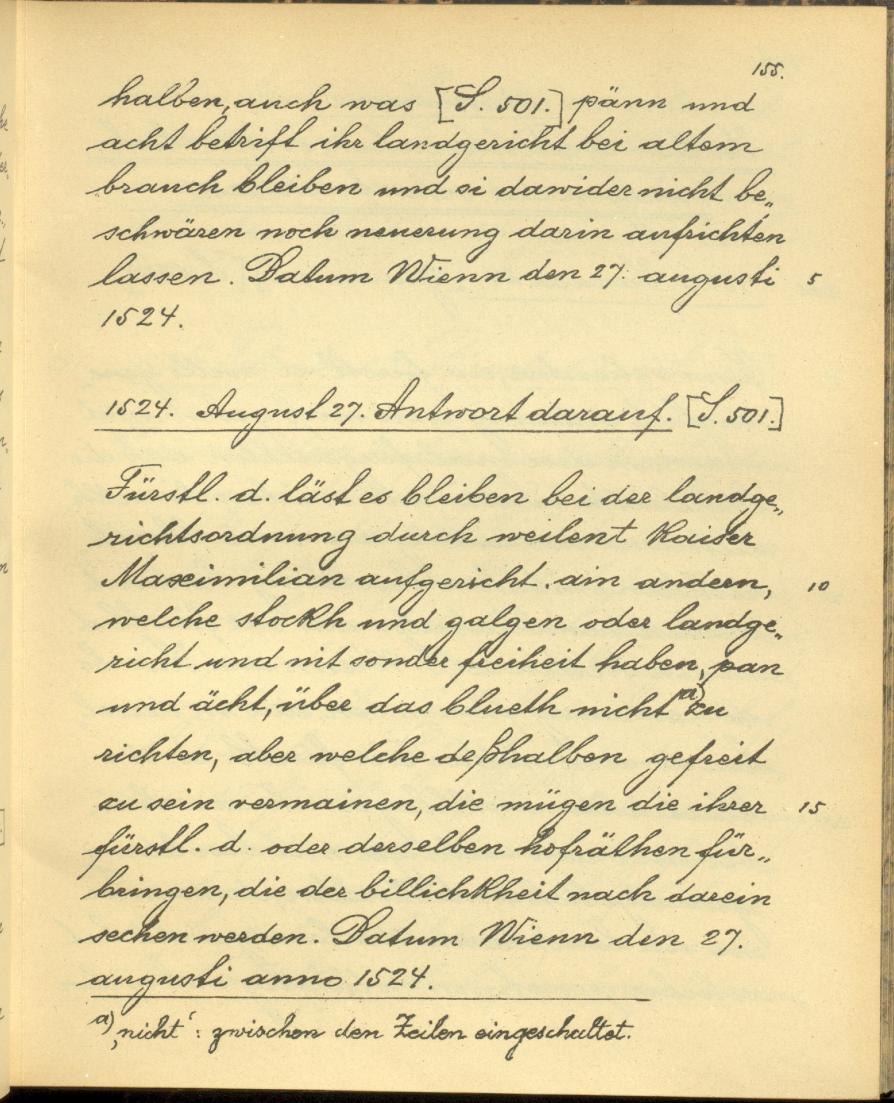 155.
halben, auch was [S. 501.] pänn und
acht betrift ihr landgericht bei altem
brauch bleiben und si dawider nicht be„
schwären noch neuerung darin aufrichten
lassen. Datum Wienn den 27. augusti 5
1524.
1524. August 27. Antwort darauf. [S. 501.]
Fürstl. d. läst es bleiben bei der landge„
richtsordnung durch weilent Kaiser
Maximilian aufgericht. ain andern, 10
welche stockh und galgen oder landge„
richt und nit sonder freiheit haben, pan
und ächt, über das blueth nicht a) zu
richten, aber welche deßhalben gefreit
zu sein vermainen, die mügen die ihrer 15
fürstl. d. oder derselben hofräthen für„
bringen, die der billichkheit nach darein
sechen werden. Datum Wienn den 27.
augusti anno 1524.
a) ‚nicht‘: zwischen den Zeilen eingeschaltet.